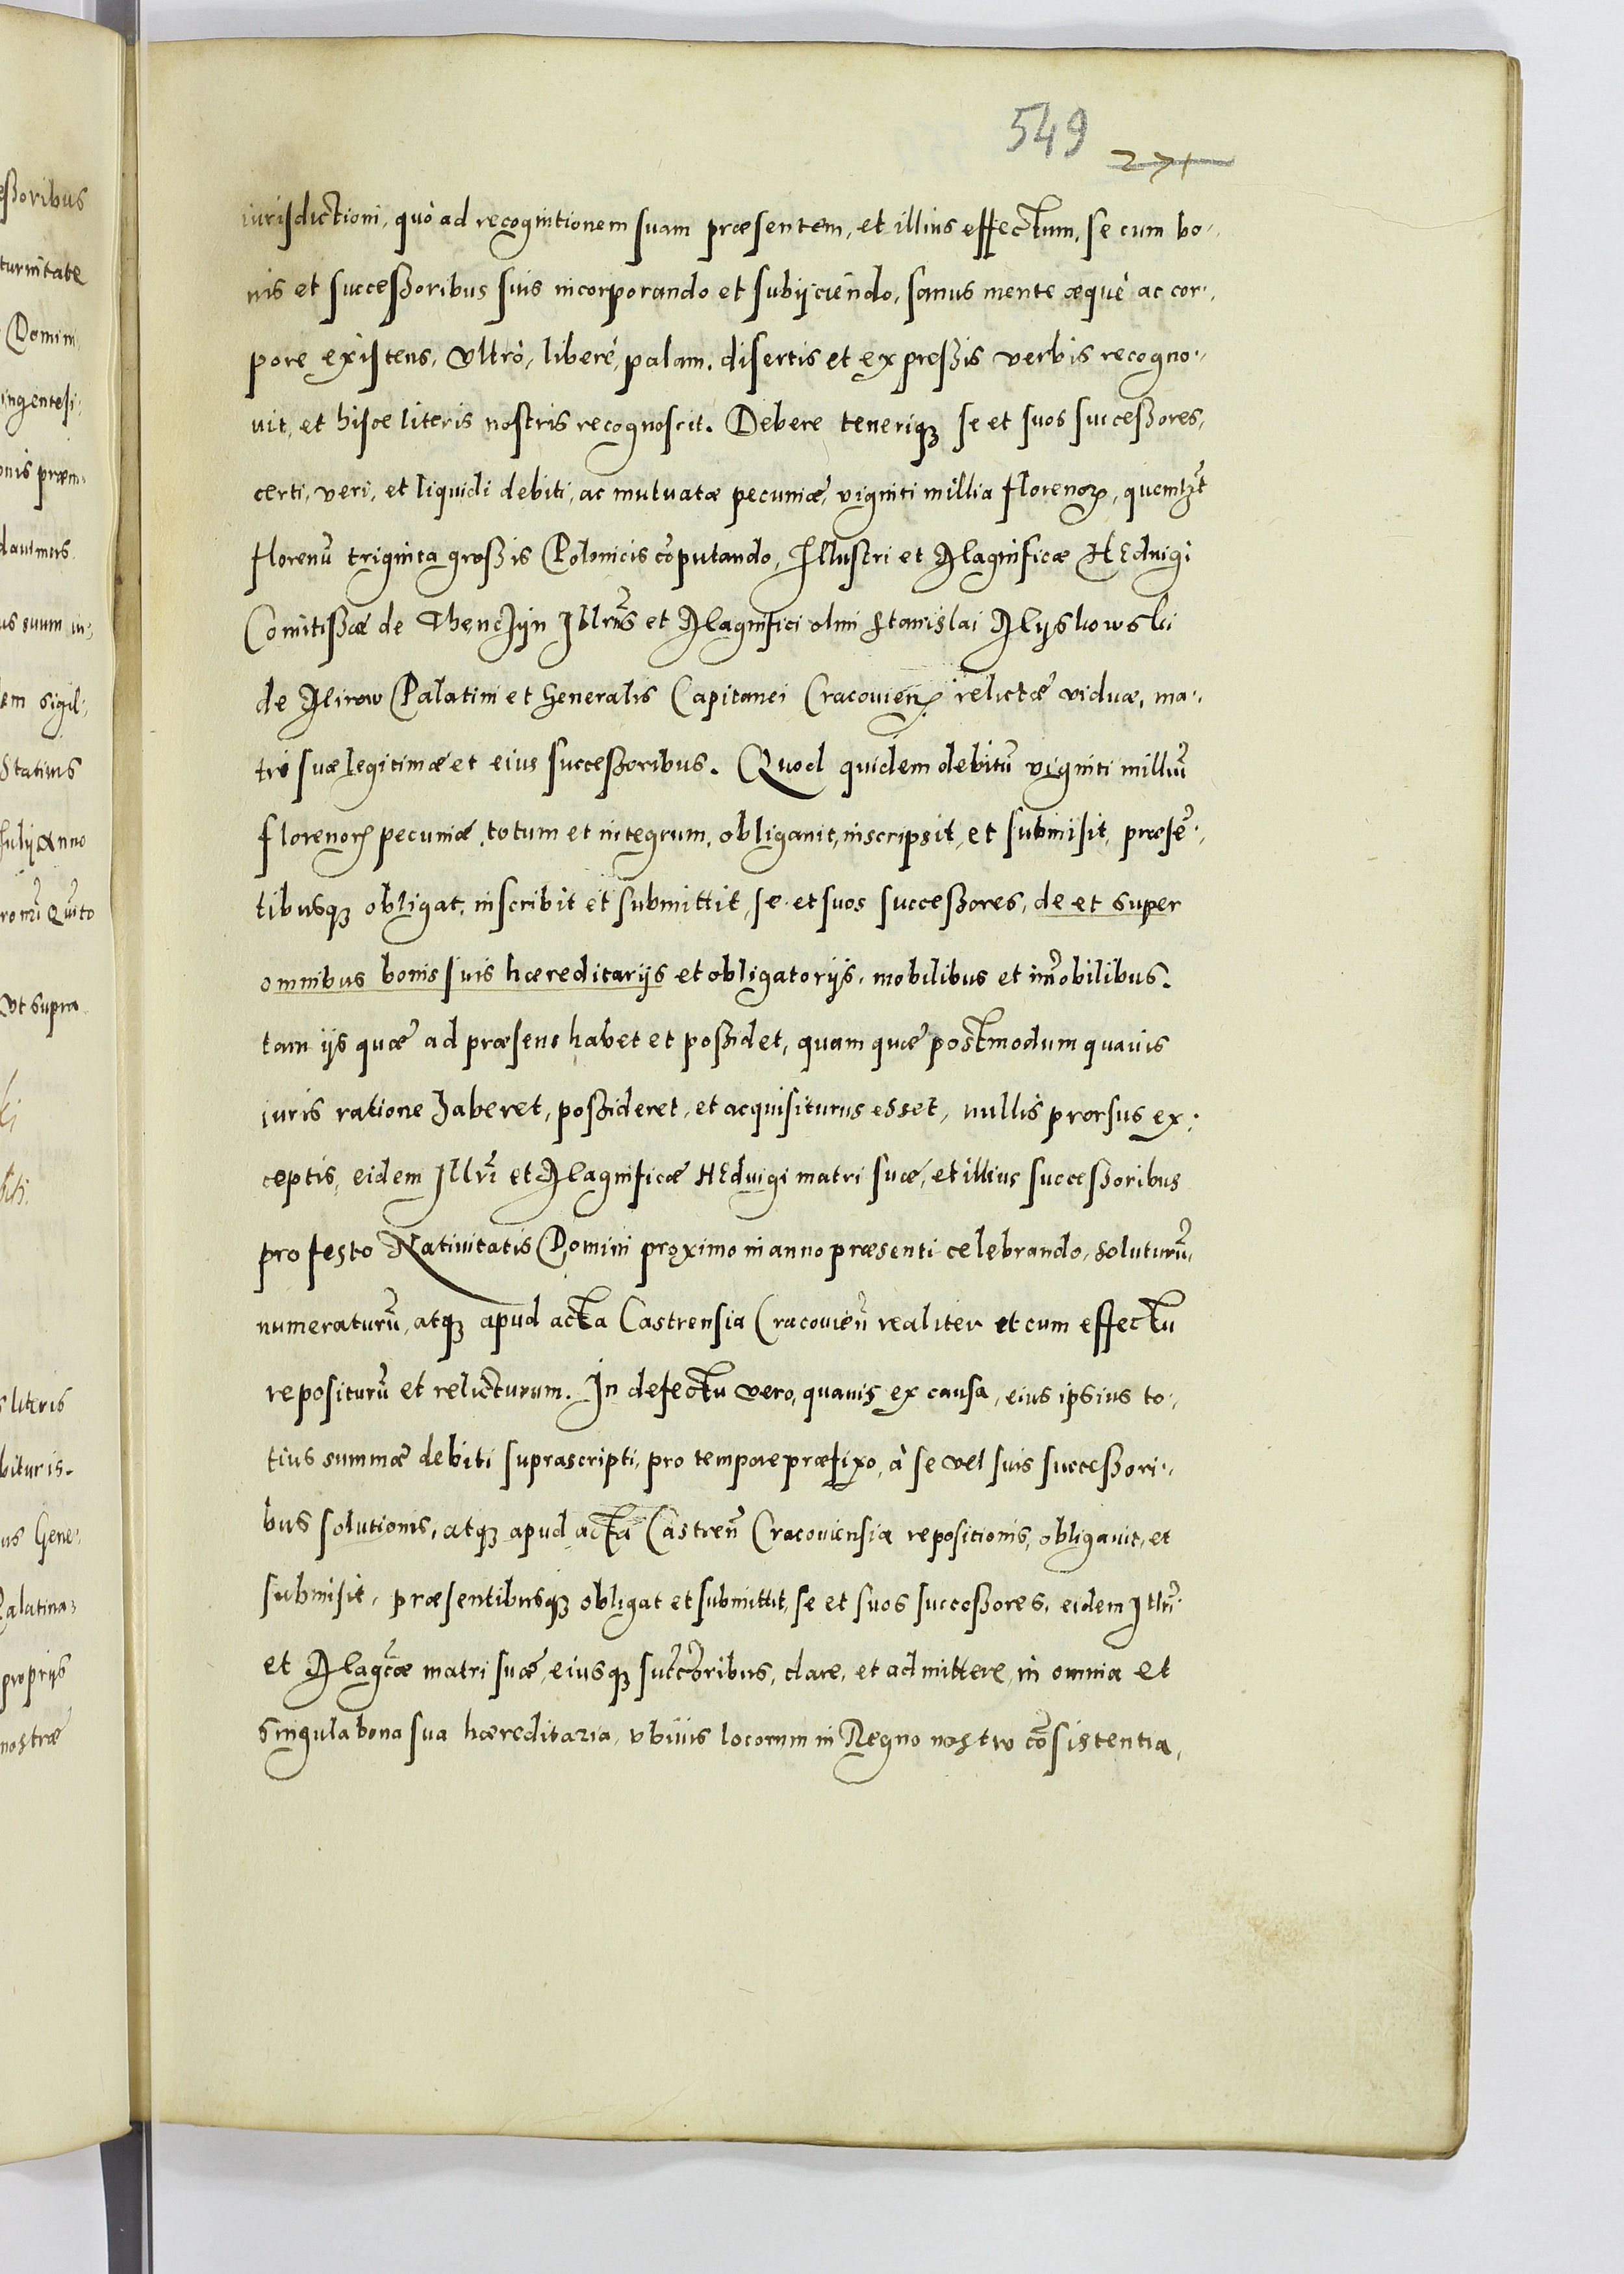 549
271
iurisdictioni, quò ad recognitionem suam præsentem, et illius effectum, se cum bo-
nis et successoribus suis incorporando et subijciendo, sanus mente æquè ac cor-
pore existens, vltrò, liberè, palam, disertis et expressis verbis recogno-
uit, et hisce literis nostris recognoscit. Debere teneriqꝫ se et suos successores,
certi, veri, et liquidi debiti, ac mutuatæ pecuniæ, viginti millia florenoꝝ, quemlꝫt
florenū triginta grossis Polonicis cōputando, Illustri et Magnificæ Hedvigi
Comitissæ de Thenczyn Illrīs et Magnifici olim Stanislai Myskowski
de Mirow Palatini et Generalis Capitanei Cracouieñ relictæ viduæ, ma-
tri suæ legitimæ et eius successoribus. Quod quidem debitū viginti milliū
florenoꝝ pecuniæ, totum et integrum, obligauit, inscripsit, et submisit, præsē-
tibusqꝫ obligat, inscribit et submittit, se et suos successores, de et super
omnibus bonis suis hæreditarijs et obligatorijs, mobilibus et im̄obilibus.
tam ijs quæ ad præsens habet et possidet, quam quæ postmodum quauis
iuris ratione haberet, possideret, et acquisiturus esset, nullis prorsus ex-
ceptis, eidem Illrī et Magnificæ Hedvigi matri suæ, et illius successoribus
pro festo Natiuitatis Domini proximo in anno præsenti celebrando, soluturū,
numeraturū, atqꝫ apud acta Castrensia Cracouieñ realiter et cum effectu
repositurū et relicturum. In defectu vero, quauis ex causa, eius ipsius to-
tius summæ debiti suprascripti, pro tempore præfixo, à se vel suis successori-
bus solutionis, atqꝫ apud acta Castreñ Cracouiensia repositionis, obligauit, et
submisit, præsentibusqꝫ obligat et submittit, se et suos successores, eidem Illrī
et Magcæ matri suæ, eiusqꝫ succ̄oribus, dare, et admittere, in omnia et
singula bona sua hæreditaria, vbiuis locorum in Regno nostro cōsistentia,